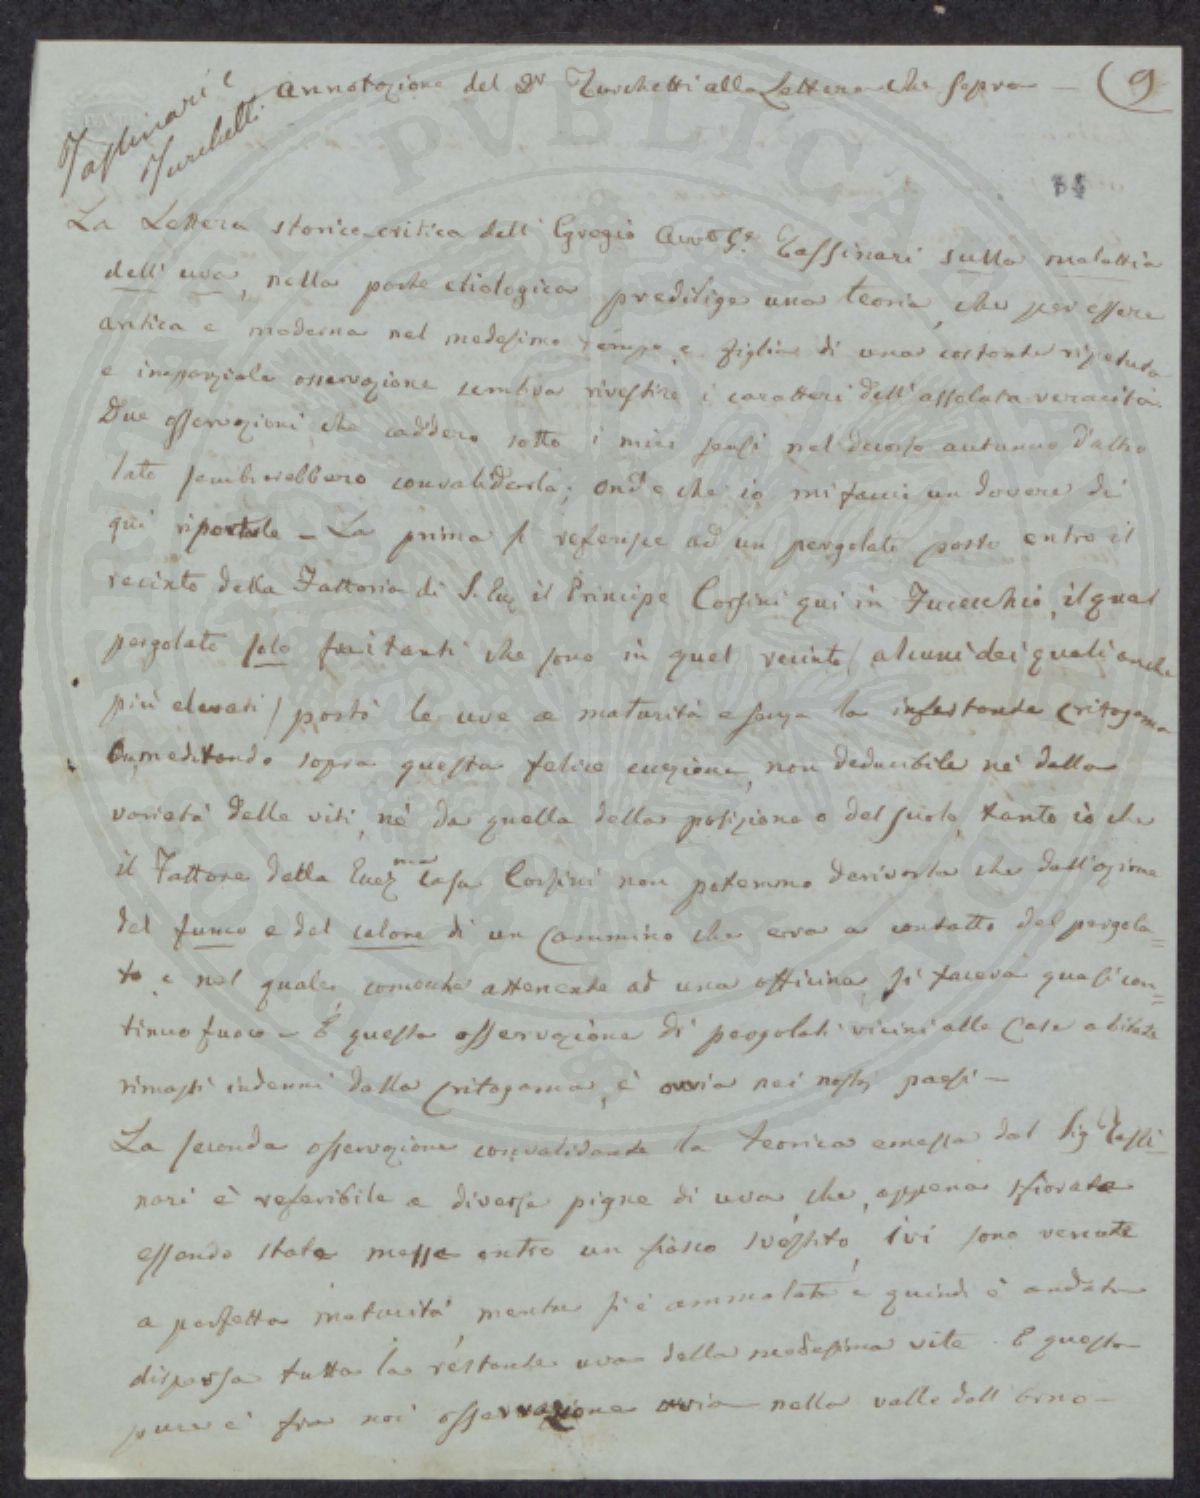 Tassinari e
Turchetti
Annotazione del Dr Turchetti alla Lettera che sopra — (9
La Lettera storico-critica dell'Egregio Avvto Ge Tassinari sulla malattia
dell'uva, nella parte etiologica predilige una teoria, che per essere
antica e moderna nel medesimo tempo, e figlia di una costante ripetuta
e imparziale osservazione sembra rivestire i caratteri dell'assoluta veracità.
Due osservazioni che caddero sotto i miei sensi nel decorso autunno d'altro
lato sembrerebbero convalidarla; onde che io mi facci un dovere di
qui riportarle — La prima si referisce ad un pergolato posto entro il
recinto della Fattoria di S. Ecz il Principe Corsini qui in Fucecchio, il qual
pergolato solo fra i tanti che sono in quel recinto / alcuni dei quali anche
più elevati / portò le uve a maturità e senza la infestante critogama
Or, meditando sopra questa felice eczione, non deducibile nè dalla
varietà delle viti, nè da quella della posizione o del suolo, tanto io che
il Fattore della Eccma Casa Corsini non potemmo derivarla che dall'azione
del fumo e del calore di un cammino che era a contatto del pergola=
to e nel quale, comecchè attenente ad una officina, si faceva quasi con=
tinuo fuoco — E questa osservazione di pergolati vicini alle Case abitate
rimasti indenni dalla critogama, è ovvia nei nostri paesi —
La seconda osservazione convalidante la teorica emessa dal Sig Tassi=
nari è referibile a diverse pigne di uva che, appena sfiorate
essendo state messe entro un fiasco svestito, ivi sono venute
a perfetta maturità, mentre si è ammalata e quindi è andata
dispersa tutta la restante uva della medesima vite. E questa
pure è fra noi osservazione ovvia nella valle dell'Arno —